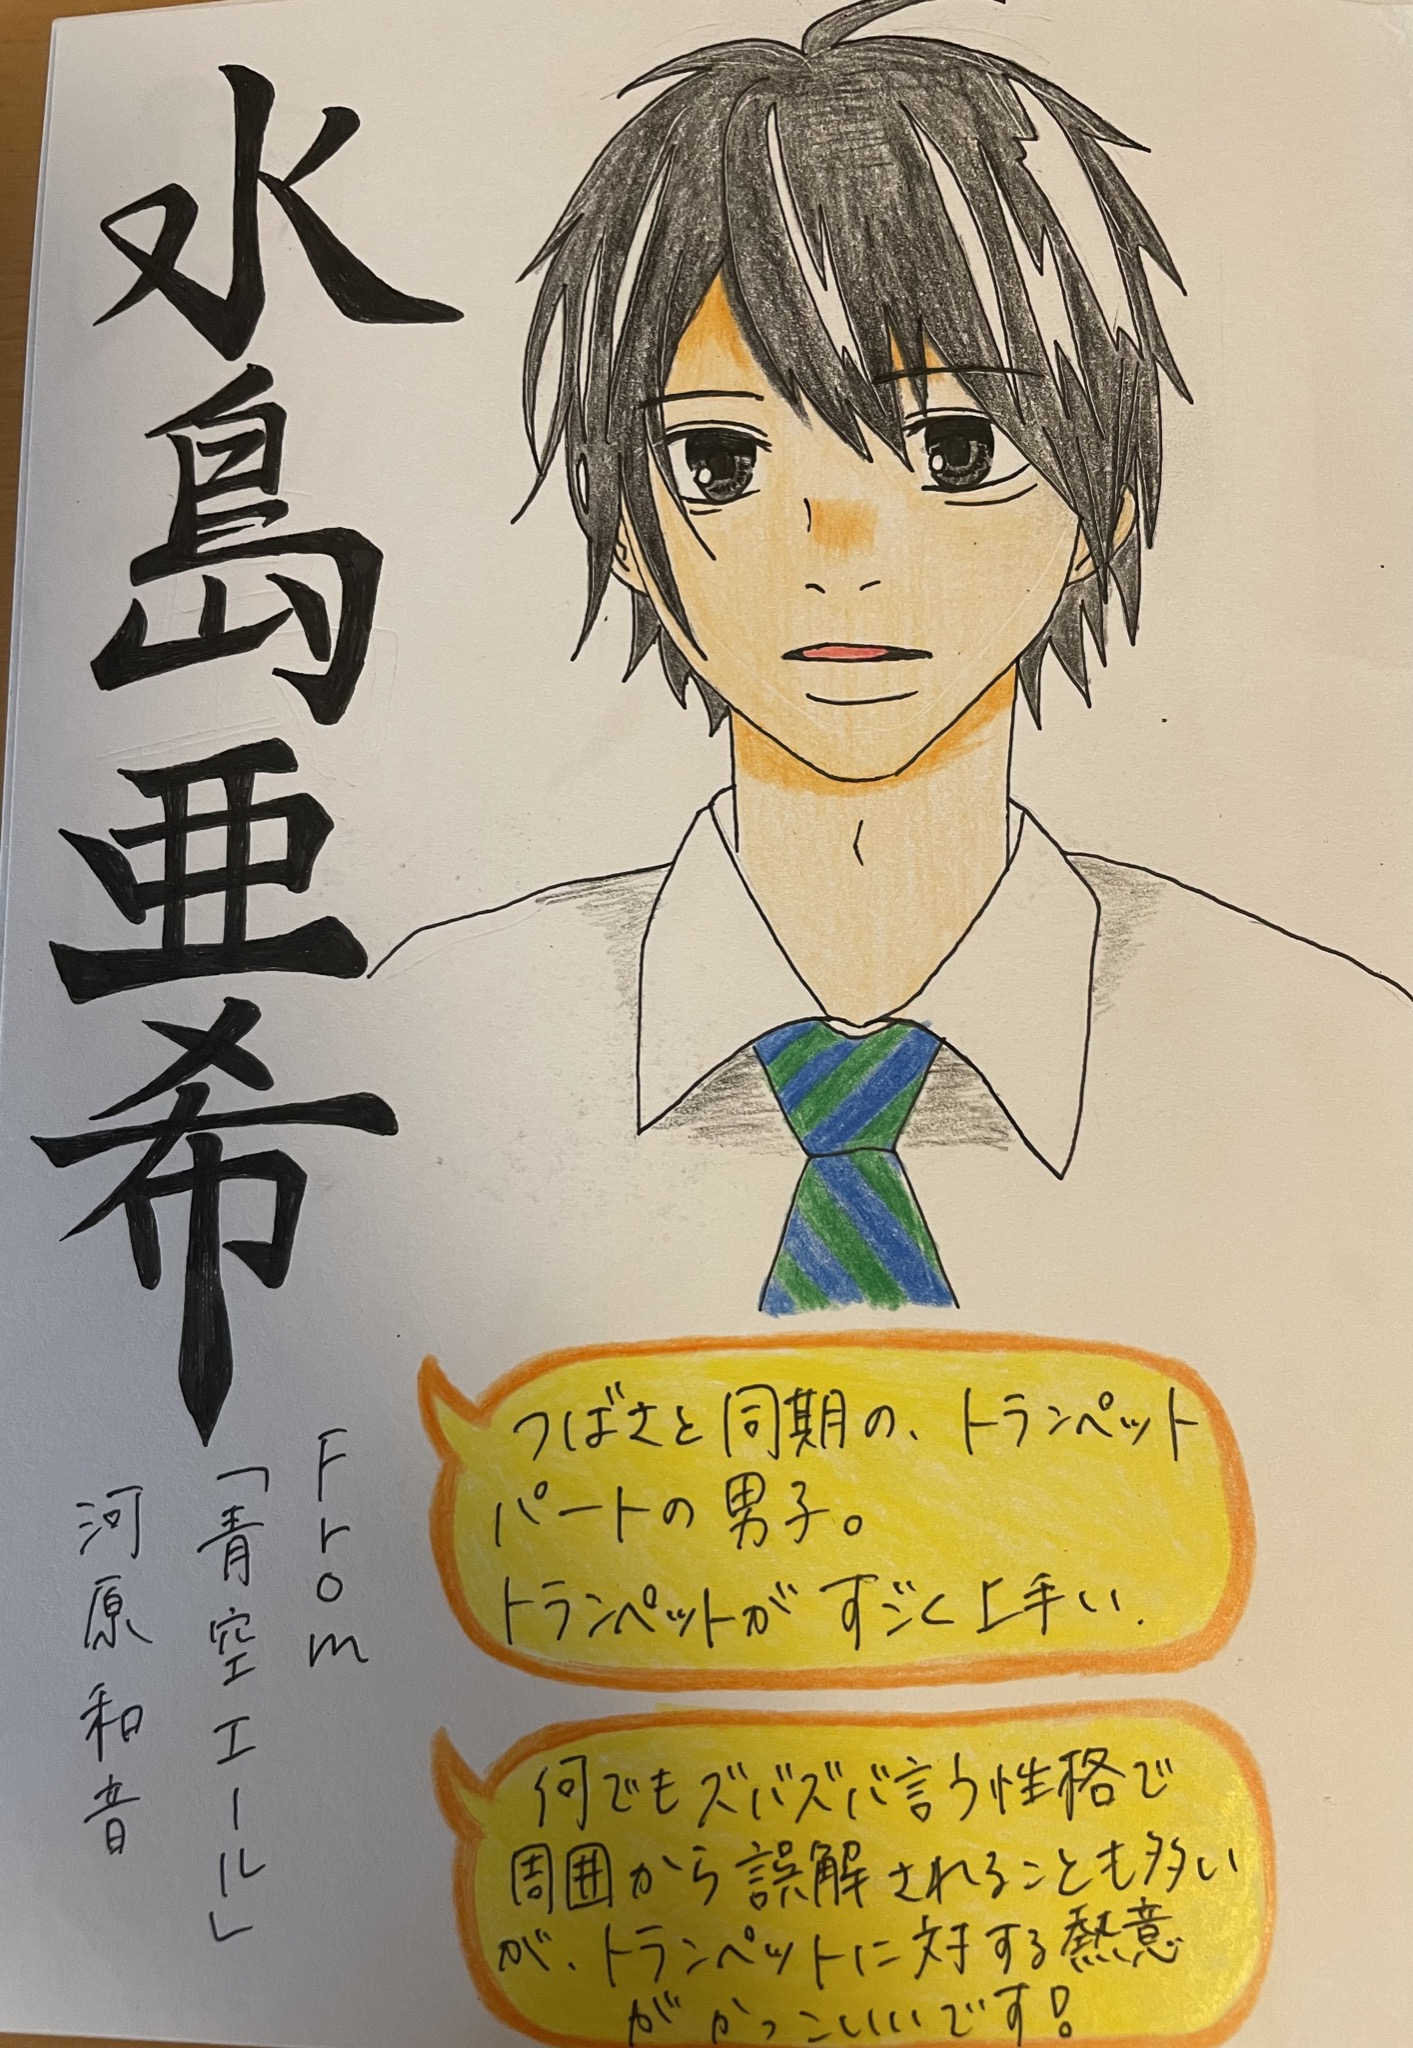 水島亜希
From
「青空エール」
河原和音
つばさと同期の、トランペット
パートの男子。
トランペットがすごく上手い.
何でもズバズバ言う性格で
周囲から誤解されることも多い
が、トランペットに対する熱意
がかっこいいです!